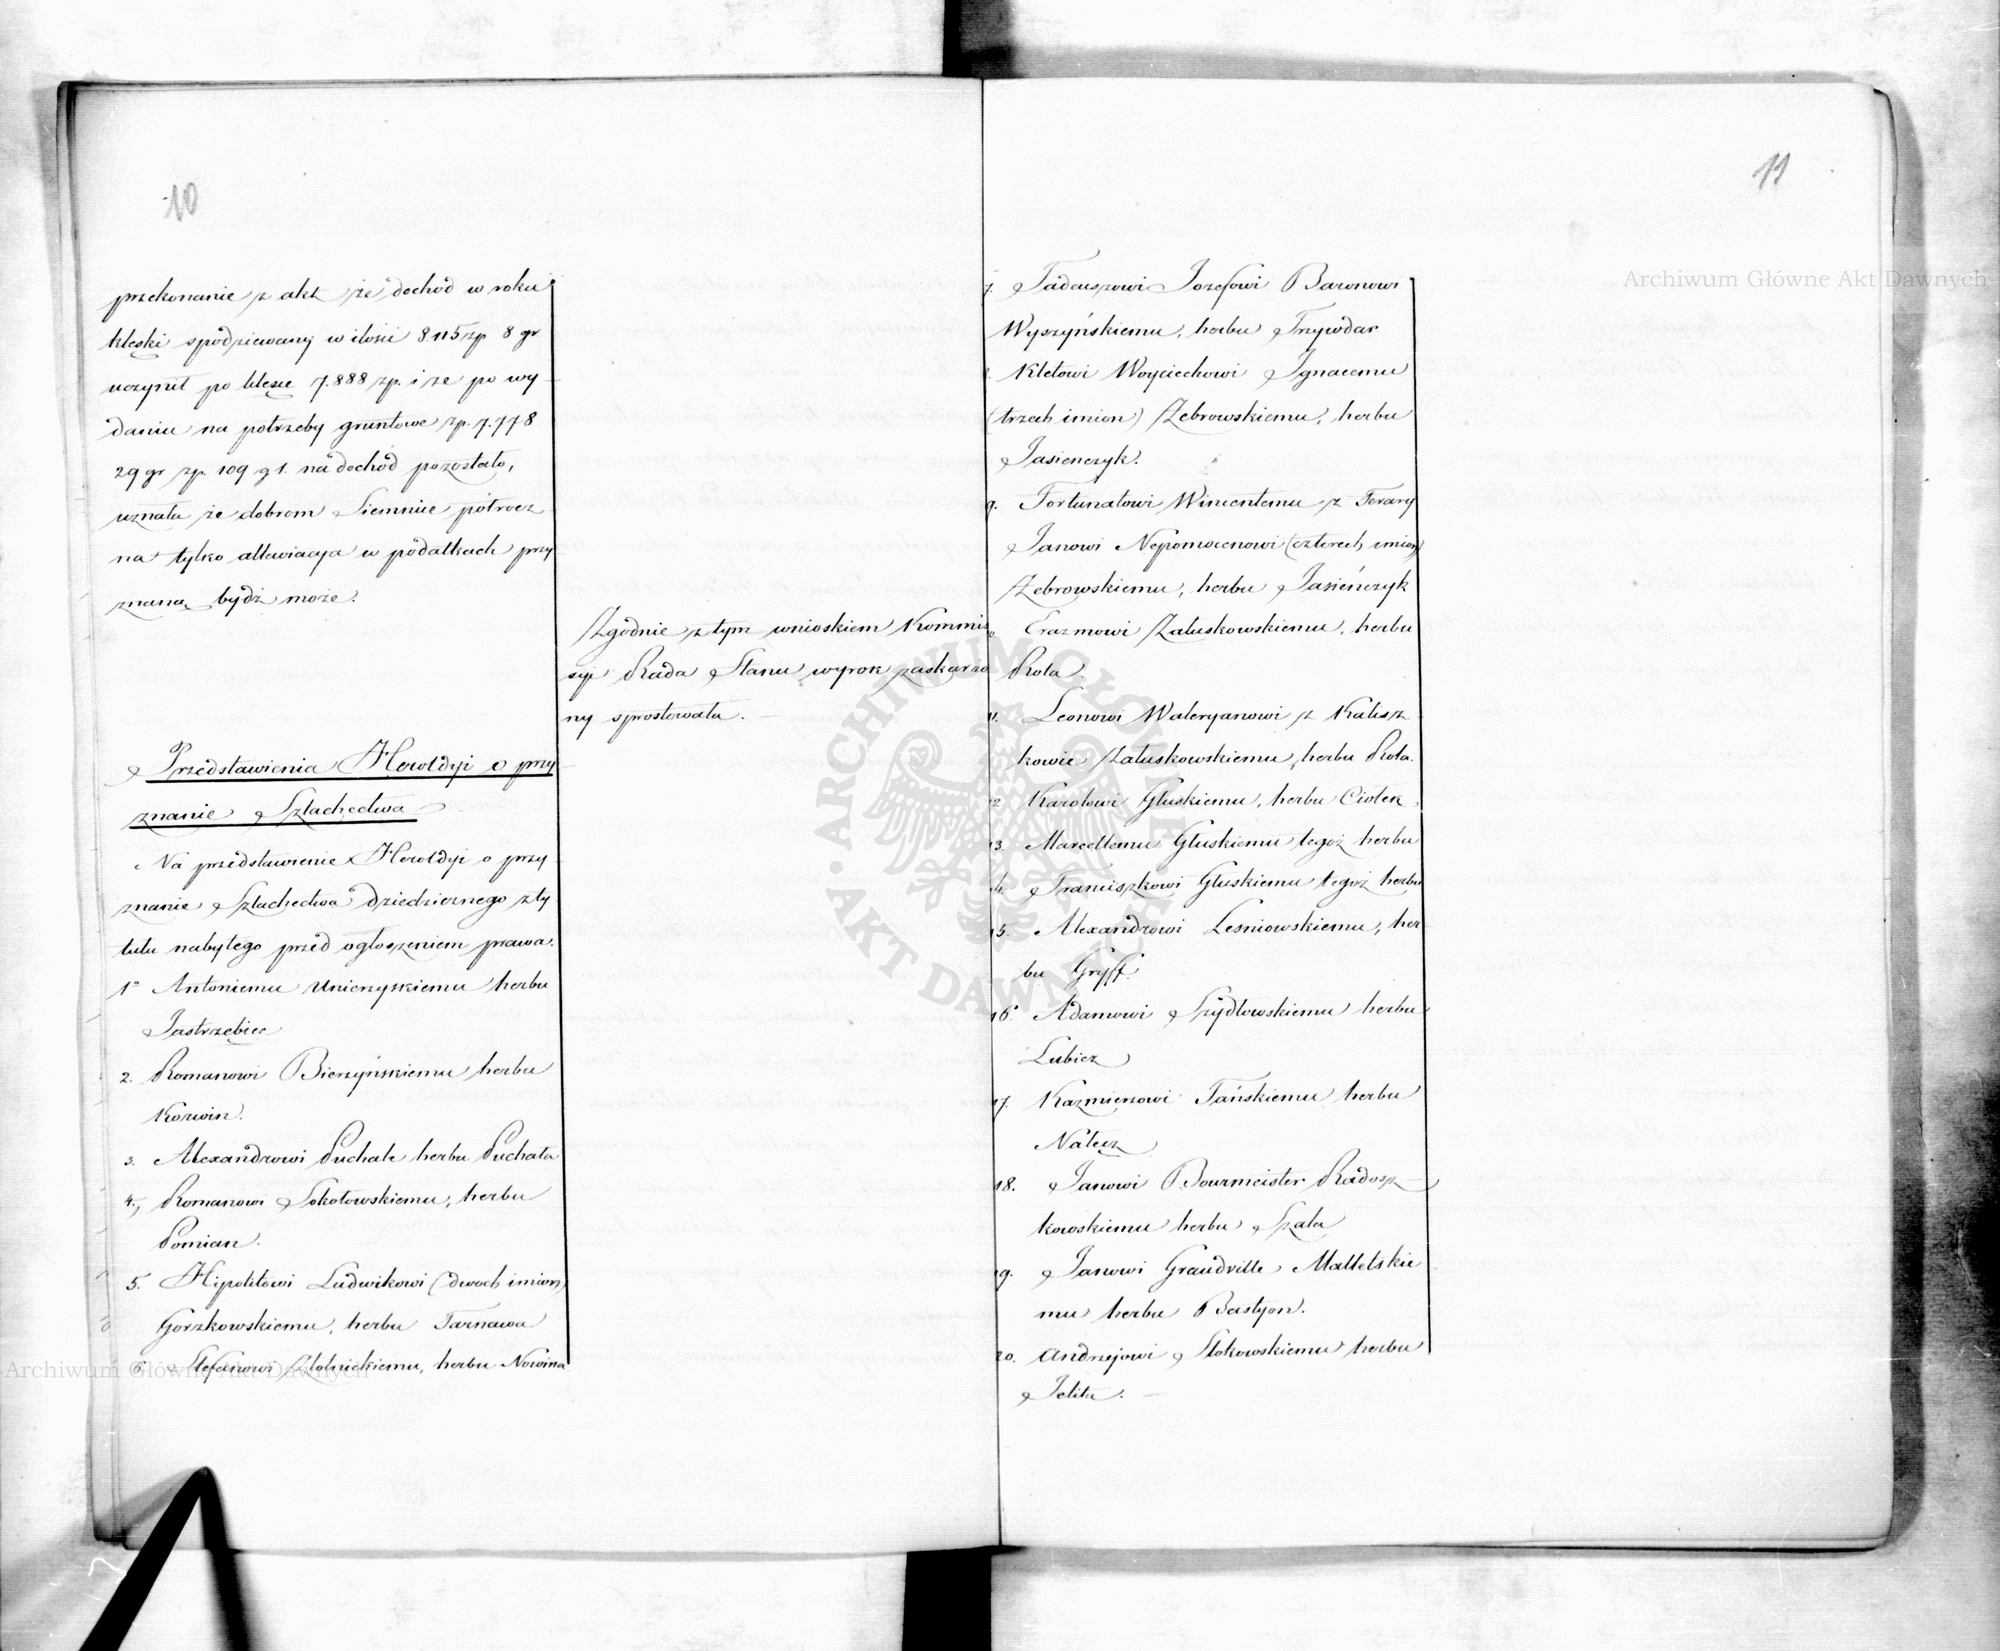 10
przekonanie z akt że dochód w roku
klęski spodziewany w ilości 8.115 zp 8 gr
uczynił po klęsce 7.888 zp. i że po wy
daniu na potrzeby gruntowe zp. 7.778
29 gr zp. 109 g 1. na dochód pozostało,
uznała że dobrom Siemnice półrocz
na tylko allewiacya w podatkach przy
znaną bydź może.
Zgodnie z tym wnioskiem Kommis
syi Rada Stanu wyrok zaskarżo
ny sprostowała.
Przedstawienia Heroldyi o przy
znanie Szlachectwa
Na przedstawienie Heroldyi o przy
znanie Szlachectwa dziedzicznego z ty
tułu nabytego przed ogłoszeniem prawa.
1° Antoniemu Unierzyskiemu herbu
Jastrzębiec
2. Romanowi Bierzyńskiemu herbu
Korwin.
3. Alexandrowi Puchale herbu Puchała
4., Romanowi Sokołowskiemu, herbu
Pomian.
5. Hipolitowi Ludwikowi (dwoch imion)
Gorzkowskiemu, herbu Tarnawa
6. Stefanowi Złotnickiemu, herbu Nowina
11
7. Tadeuszowi Jozefowi Baronowi
Wyszyńskiemu, herbu Trzywdar
Kletowi Woyciechowi Ignacemu
(trzech imion) Żebrowskiemu, herbu
Jasienczyk.
9. Fortunatowi Wincentemu z Ferary
Janowi Nepomucenowi (czterech imion)
Żebrowskiemu, herbu Jasieńczyk
Erazmowi Załuskowskiemu, herbu
Rola.
11. Leonowi Waleryanowi z Kalisz
kowic Załuskowskiemu, herbu Rola.
12 Karolowi Głuskiemu, herbu Ciołek
13. Marcellemu Głuskiemu tegoż herbu
14. Franciszkowi Głuskiemu tegoż herbu
15. Alexandrowi Lesniowskiemu, her
bu Gryff.
16. Adamowi Szydłowskiemu herbu
Lubicz
17. Kazmierzowi Tańskiemu herbu
Nałęcz
18. Janowi Bourmeister Radosz
kowskiemu herbu Szala
19. Janowi Grandville Malletskie
mu herbu Bastyon.
20. Andrzejowi Stokowskiemu herbu
Jelita.
Archiwum Główne Akt Dawnych
Archiwum Główne Akt Dawnych
ARCHIWUM GŁÓWNE · AKT DAWNYCH ·